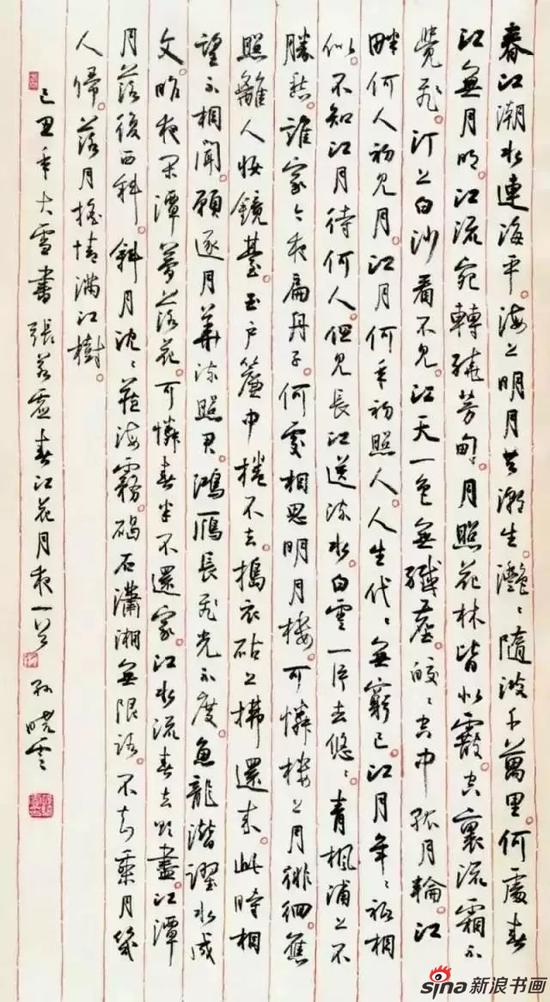 春江潮水連海平。海上明月共潮生。灩〻隨波千萬里。何處春
江無月明。江流宛轉繞芳甸。月照花林皆似霰。空裏流霜不
覺飛。汀上白沙看不見。江天一色無纖塵。皎〻空中孤月輪。江
畔何人初見月。江月何年初照人。人生代〻無窮已。江月年〻祗相
似。不知江月待何人。但見長江送流水。白雲一片去悠〻。青楓浦上不
勝愁。誰家今夜扁舟子。何處相思明月樓。可憐樓上月徘徊。應
照離人妝鏡臺。玉戶簾中捲不去。搗衣砧上拂還來。此時相
望不相聞。願逐月華流照君。鴻雁長飛光不度。魚龍潛躍水成
文。昨夜閑潭夢落花。可憐春半不還家。江水流春去欲盡。江潭
月落復西斜。斜月沈〻藏海霧。碣石瀟湘無限路。不知乘月幾
人歸。落月搖情滿江樹。
己丑年大雪書張若虛春江花月夜一首 孫曉雲
sina 新浪书画